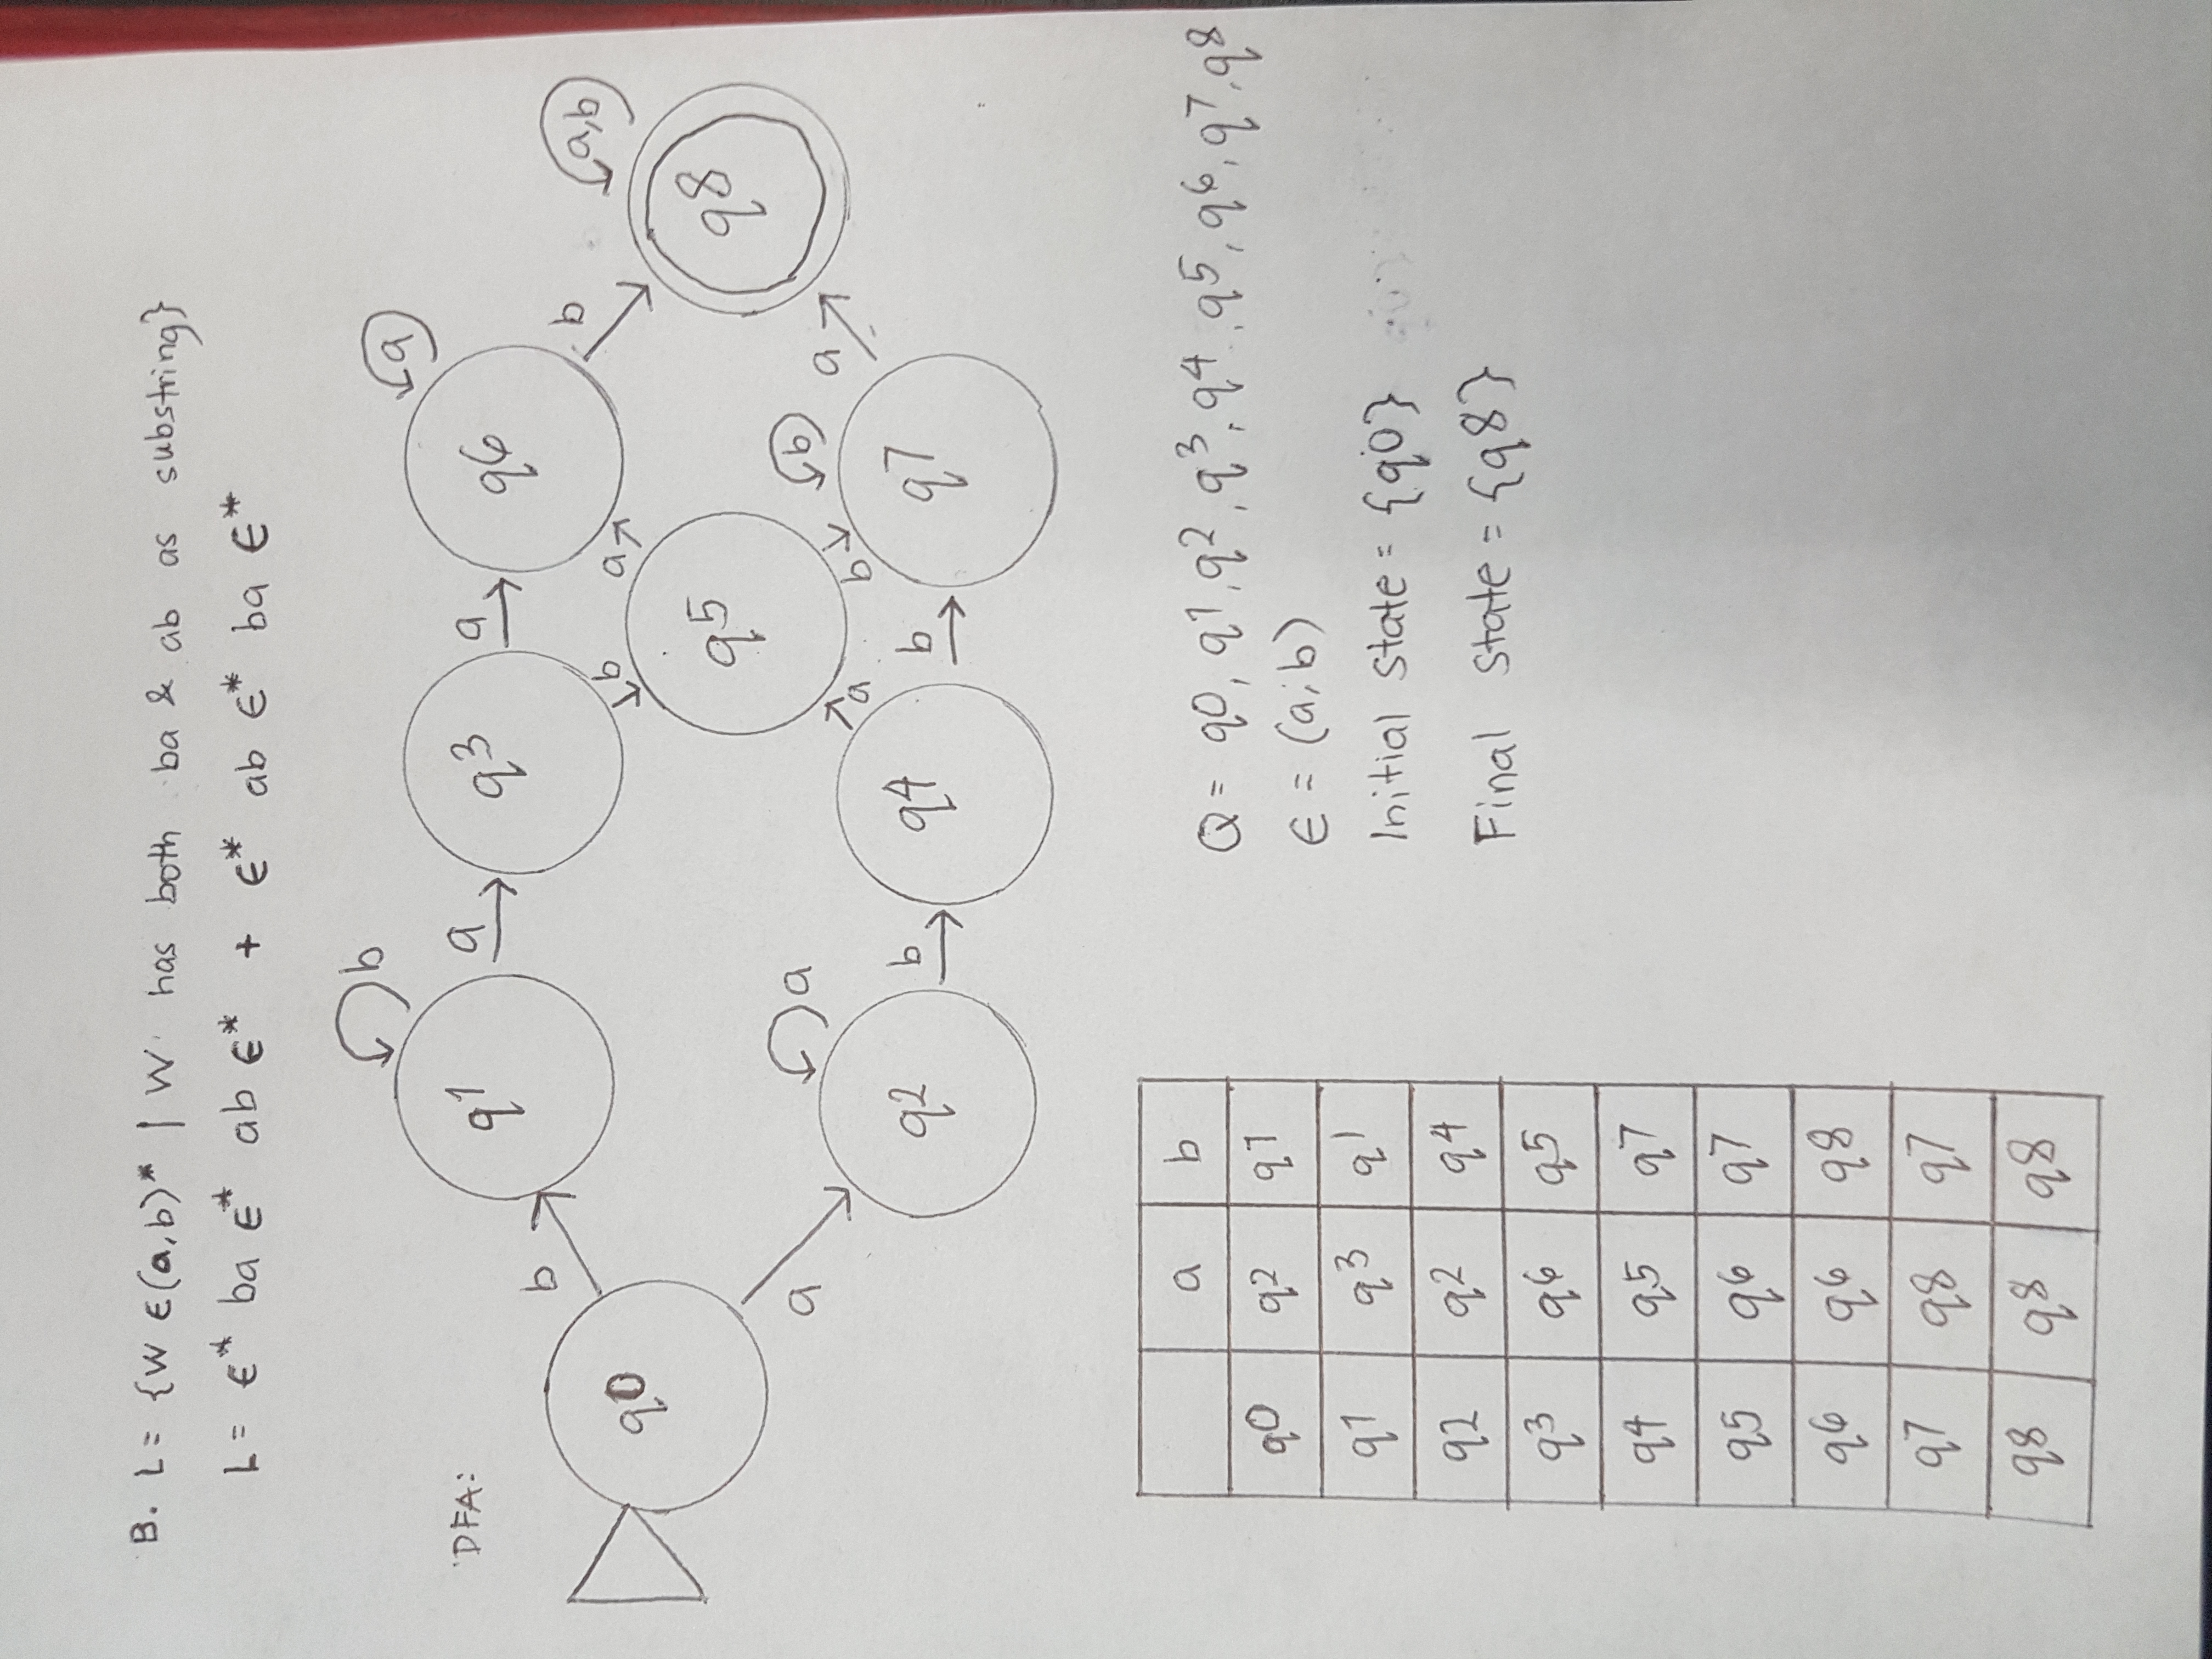 B. L= {W ϵ(a,b)* | W has both ba & ab as substring}
L= ϵ* ba ϵ* ab ϵ* + ϵ* ab ϵ* ba ϵ*
DFA:
b
a
a
a
b
a,b
q0
q1
q3
q6
q8
b
b
a
b
q5
a
a
b
b
b
a
a
b
a
q2
q4
q7
a b
q0 q2 q1
q1 q3 q1
q2 q2 q4
q3 q6 q5
q4 q5 q7
q5 q6 q7
q6 q6 q8
q7 q8 q7
q8 q8 q8
Q = q0, q1, q2, q3, q4, q5, q6, q7, q8
ϵ = (a,b)
Initial state = {q0}
Final state = {q8}